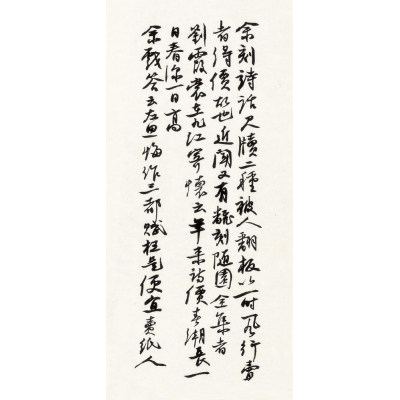 余刻詩話尺牘二種被人翻板以一时風行賣
者得價故也近闻又有翻刻随園全集者
劉霞裳在九江寄懷云年来詩價春潮長一
日春深一日高
余戲答云左思悔作三都賦枉是便宜賣紙人